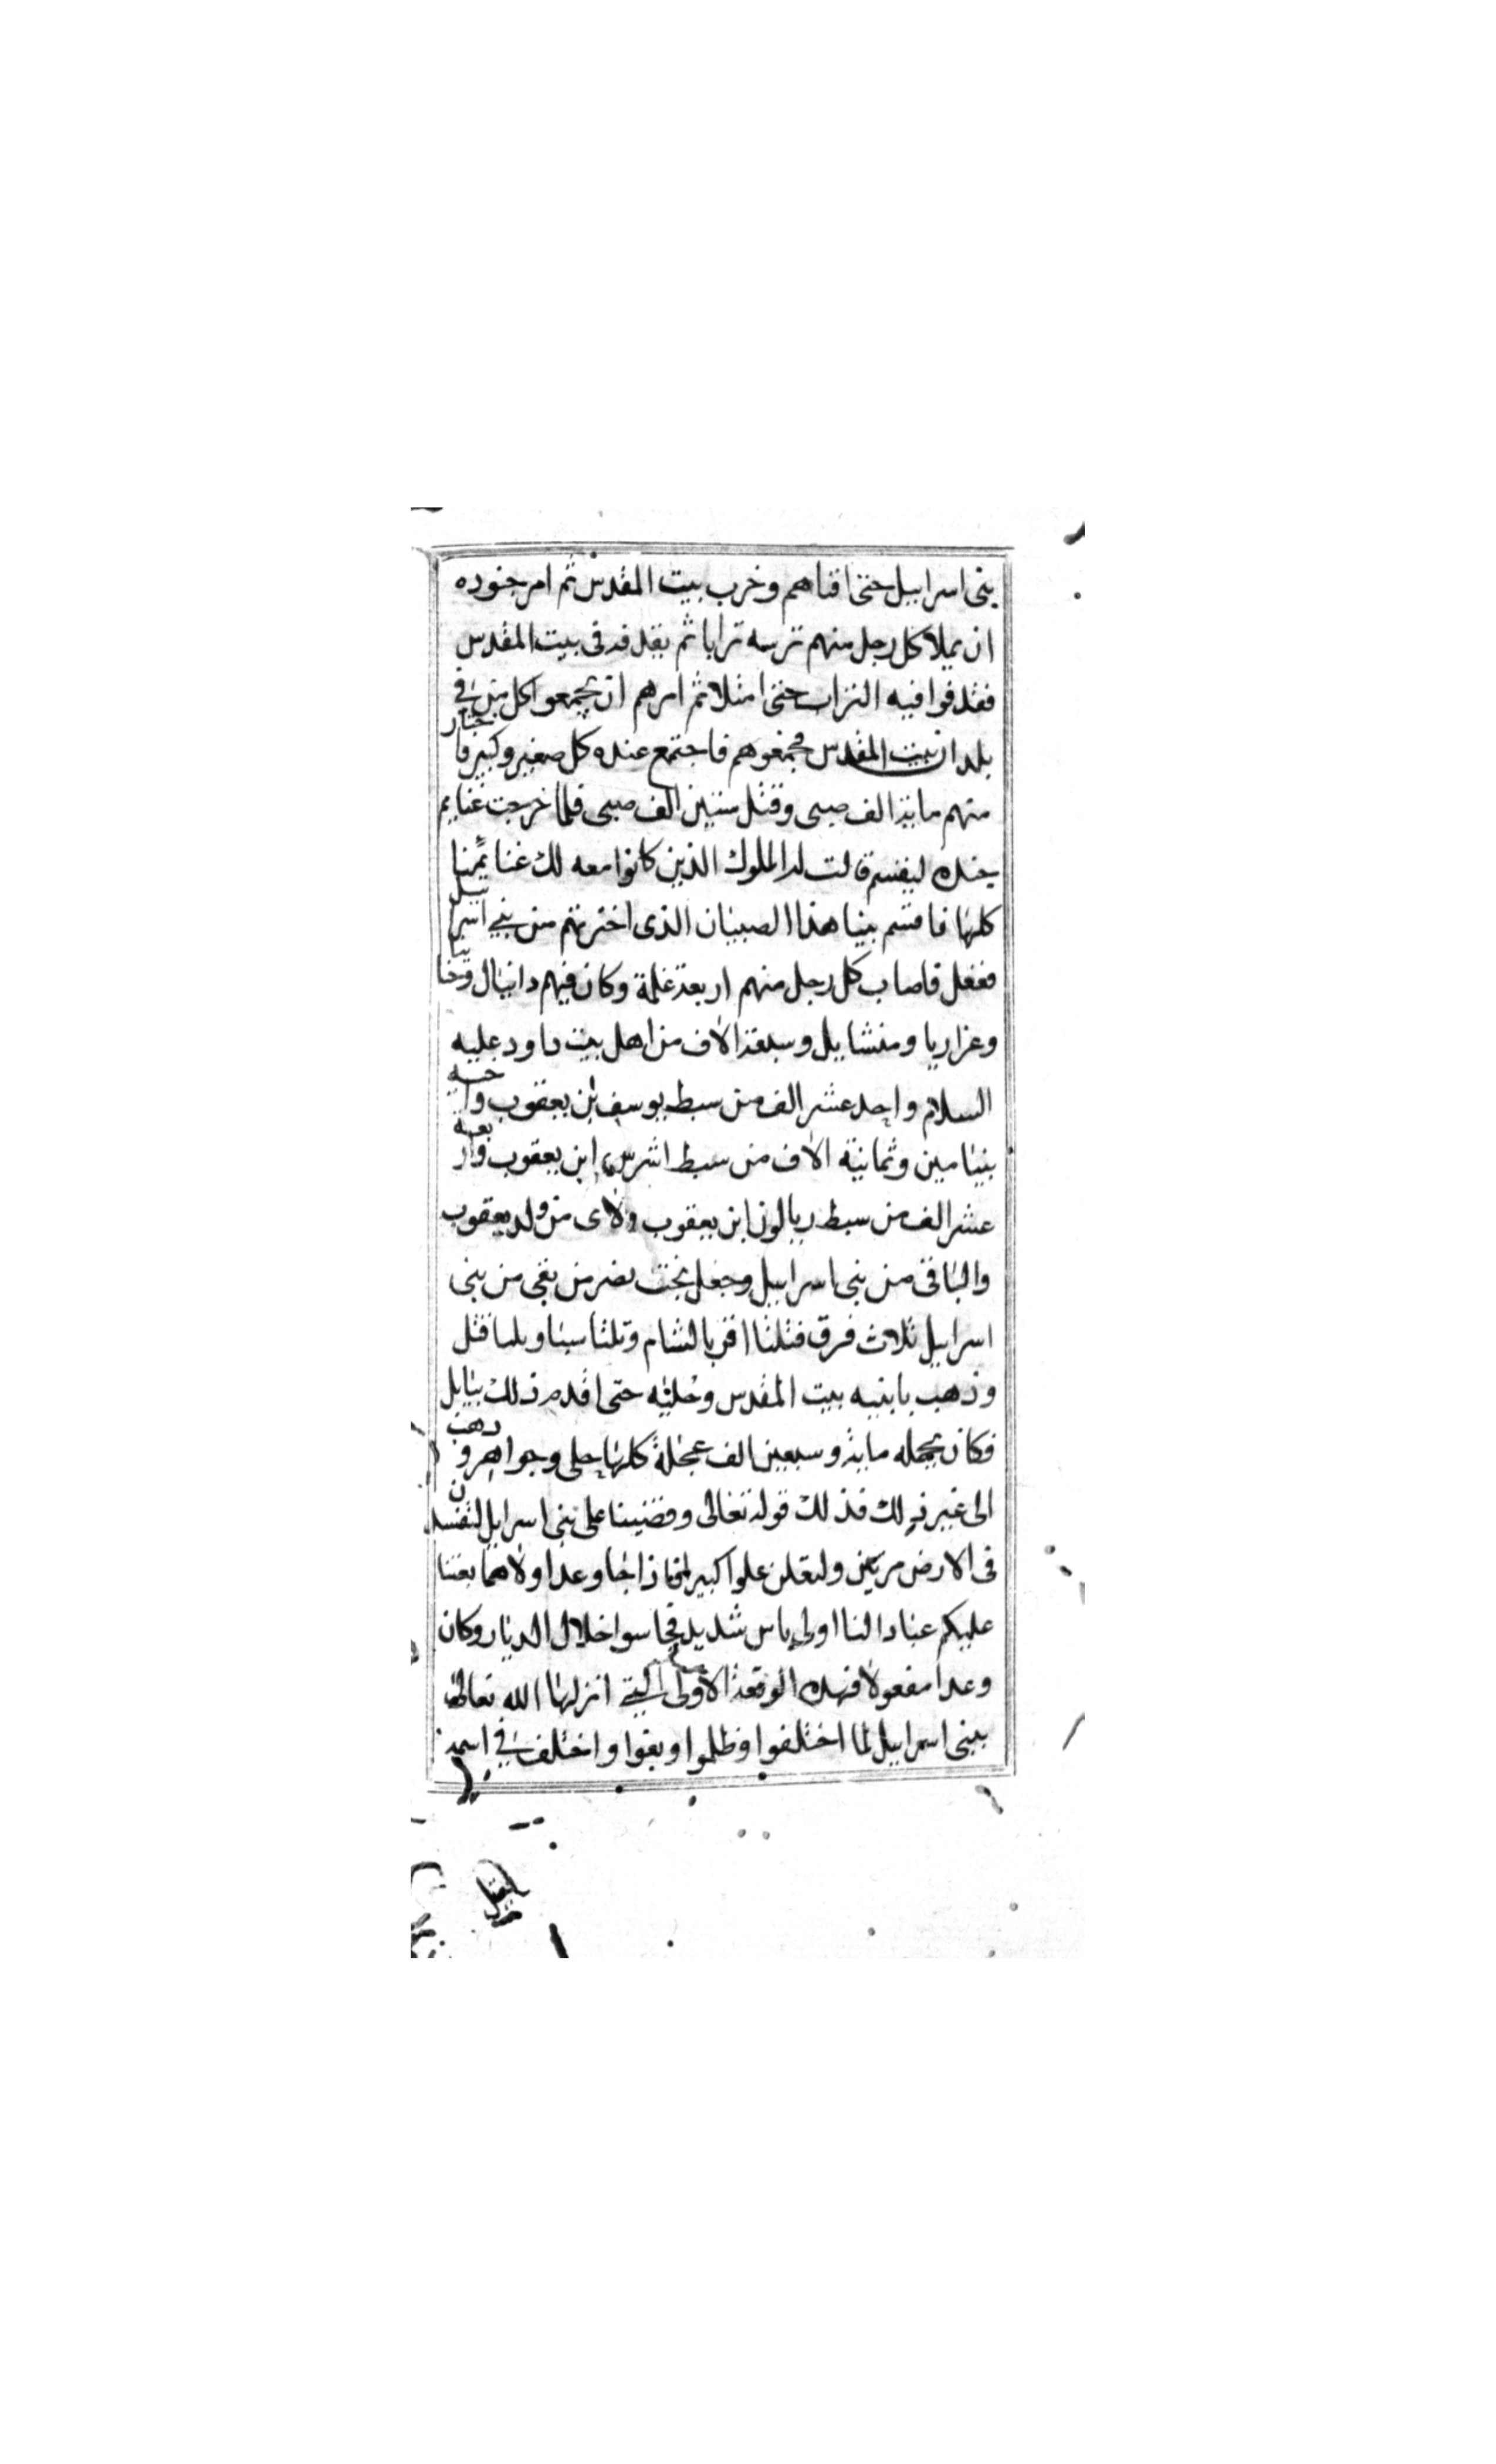 بنى اسرايل حتى افناهم وخرب بيت المقدس ثم امر جنوده
ان يملا كل رجل منهم ترسه ترابا ثم يقذفه فى بيت المقدس
فقذفوا فيه التراب حتى امتلا ثم امرهم ان يجمعوا كل من فى
بلدان بيت المقدس فجمعوهم فاجتمع عنده كل صغير وكبير فاختار
منهم ماية الف صبى وقتل ستين الف صبى فلما خرجت غنايم
جنده ليقسم قالت له الملوك الذين كانوا معه لك غنايمنا
كلها فاقسم بينا هذا الصبيان الذى اخترتهم من بنى اسراييل
ففعل فاصاب كل رجل منهم اربعة غلمة وكان فيهم دانيال وحنانيا
وعزاريا ومنشايل وسبعة الاف من اهل بيت داود عليه
السلام واحد عشر الف من سبط يوسف بن يعقوب واخيه
بنيامين وثمانية الاف من سبط اشرس ابن يعقوب واربعة
عشر الف من سبط ربالون ابن يعقوب ولاى من ولد يعقوب
والباقى من بنى اسراييل وجعل بخت نصر من بقى من بنى
اسراييل ثلاث فرق فثلثا اقر بالشام وثلثا سبا وثلثا قتل
وذهب بانيه بيت المقدس وحليه حتى اقدم ذلك ببابل
فكان يحمله ماية وسبعين الف عجلة كلها حلى وجواهر وذهب
الى غير ذلك فذلك قوله تعالى وقضينا على بنى اسرايل لتفسدن
فى الارض مرتين ولتعلن علوا كبيرا فاذا جا وعد اولاهما بعثنا
عليكم عبادا لنا اولى باس شديد فجاسوا خلال الديار وكان
وعدا مفعولا فهذه الوقعة الاولى التى انزلها الله تعالى
ببنى اسراييل لما اختلفوا وظلموا وبغوا واختلف فى اسمه